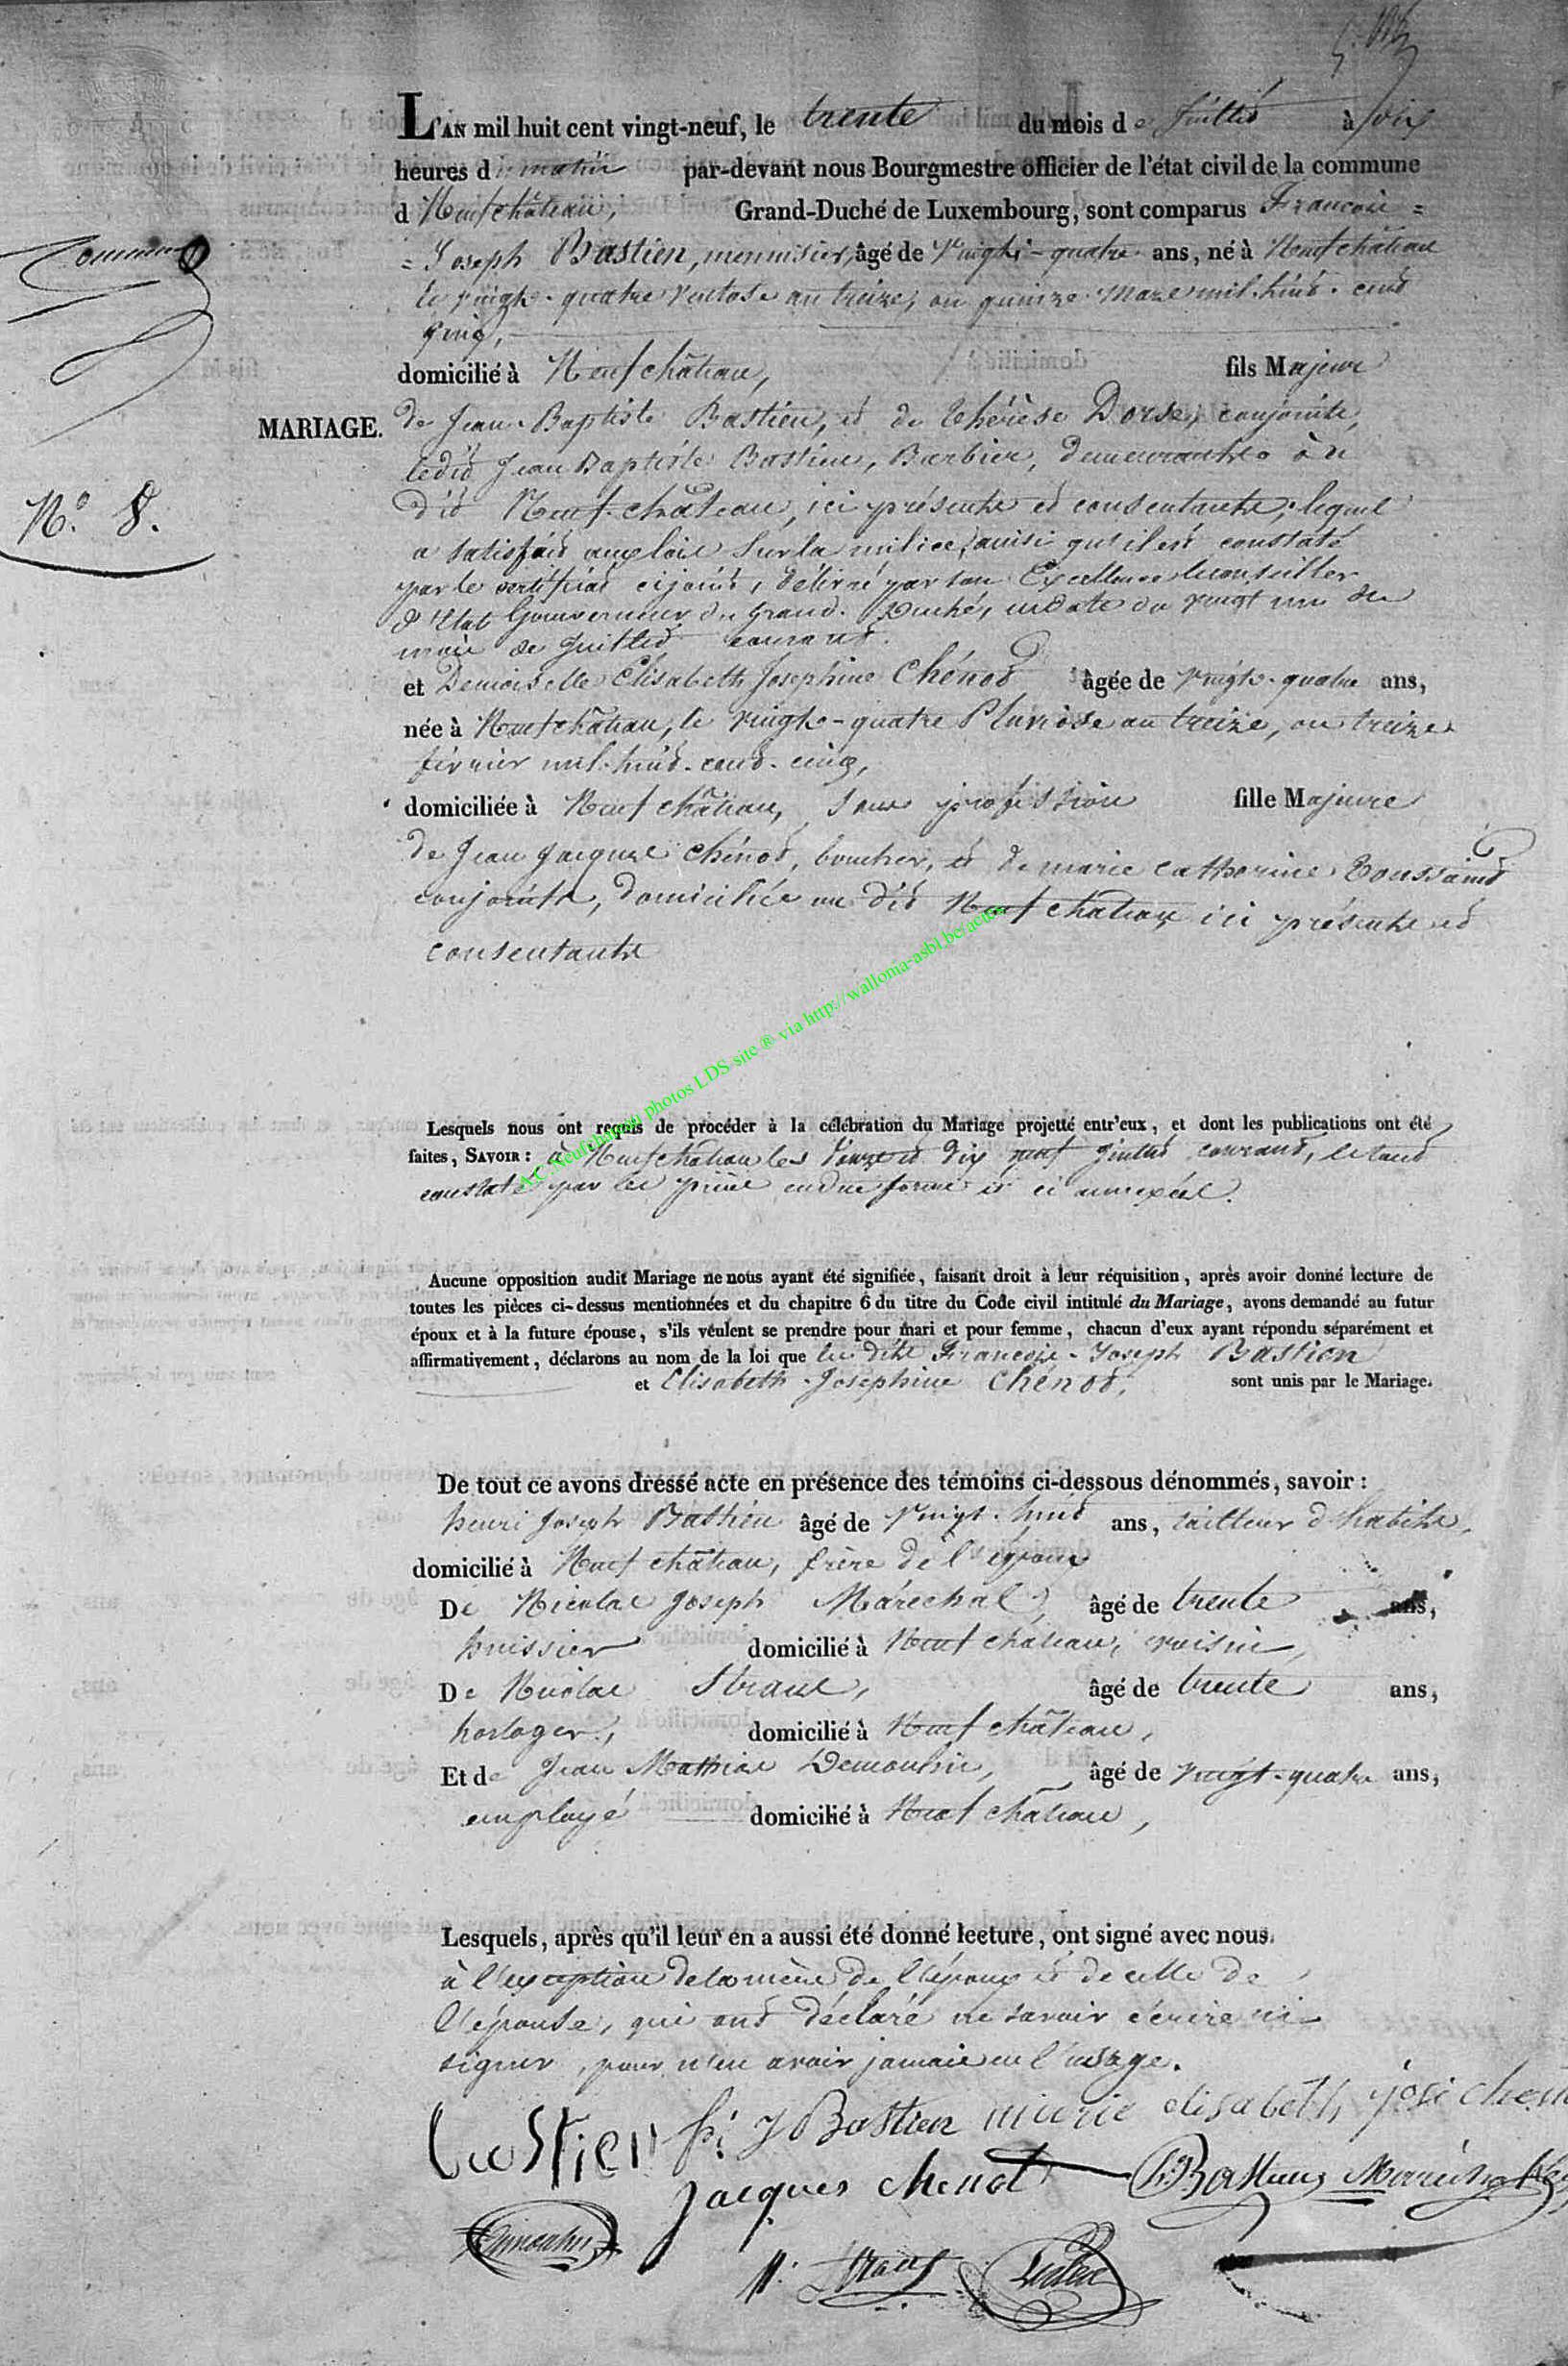 L'AN mil huit cent vingt-neuf, le trente du mois de Juillet à six
heures du matin par-devant nous Bourgmestre officier de l'état civil de la commune
d Neufchâteau, Grand-Duché de Luxembourg, sont comparus François =
= Joseph Bastien, menuisier, âgé de Vingt-quatre ans, né à Neufchâteau
le vingt-quatre Ventose an treize, ou quinze Mars mil-huit-cent
cinq,
domicilié à Neufchâteau, fils Majeur
MARIAGE.
de Jean-Baptiste Bastien, et de Thérèse Dorse, conjoints,
ledit Jean Baptiste Bastien, Barbier, demeurants au
dit Neufchâteau, ici présents et consentants, lequel
N.o 8.
a satisfait aux lois sur la milice, ainsi qu'il est constaté
par le certificat cijoint, délivré par son Excellence le conseiller
d'Etat Gouverneur du Grand-Duché, en date du vingt un du
mois de Juillet courant.
et Demoiselle Elisabeth Josephine Chénot âgée de vingt-quatre ans,
née à Neufchâteau, le vingt-quatre Pluviôse an treize, ou treize
février mil-huit-cent-cinq,
domiciliée à Neufchâteau, sans profession fille Majeure
de Jean Jacques Chénot, boucher, et de marie catherine Toussaint
conjoints, domiciliés au dit Neufchâteau ici présents et
consentants
A.C. Neufchateau photos LDS-site ® via http://wallonia-asbl.be/actes
Lesquels nous ont requis de procéder à la célébration du Mariage projetté entr'eux, et dont les publications ont été
faites, SAVOIR : à Neufchâteau les douze et dix neuf Juillet courant, le tout
constaté par les pièces en due forme et ci annexées.
Aucune opposition audit Mariage ne nous ayant été signifiée, faisant droit à leur réquisition, après avoir donné lecture de
toutes les pièces ci-dessus mentionnées et du chapitre 6 du titre du Code civil intitulé du Mariage, avons demandé au futur
époux et à la future épouse, s'ils veulent se prendre pour mari et pour femme, chacun d'eux ayant répondu séparément et
affirmativement, déclarons au nom de la loi que les dits François-Joseph Bastien
et Elisabeth-Josephine Chénot, sont unis par le Mariage.
De tout ce avons dressé acte en présence des témoins ci-dessous dénommés, savoir :
henri Joseph Bastien âgé de vingt-huit ans, tailleur d'habits,
domicilié à Neufchâteau, frère de l'époux
De Nicolas Joseph Maréchal, âgé de trente ans,
huissier domicilié à Neufchâteau, voisin,
De Nicolas Straus, âgé de trente ans,
horloger, domicilié à Neufchâteau,
Et de Jean Mathias Demoulin, âgé de vingt-quatre ans,
employé domicilié à Neufchâteau,
Lesquels, après qu'il leur en a aussi été donné lecture, ont signé avec nous.
à l'exception de la mère de l'époux et de celle de
l'épouse, qui ont déclaré ne savoir écrire ni
signer, pour n'en avoir jamais eu l'usage.
bastien fr J Bastien marie elisabeth
jacques chenot h: Bastien Maréchal
Demoulin
N. Straus